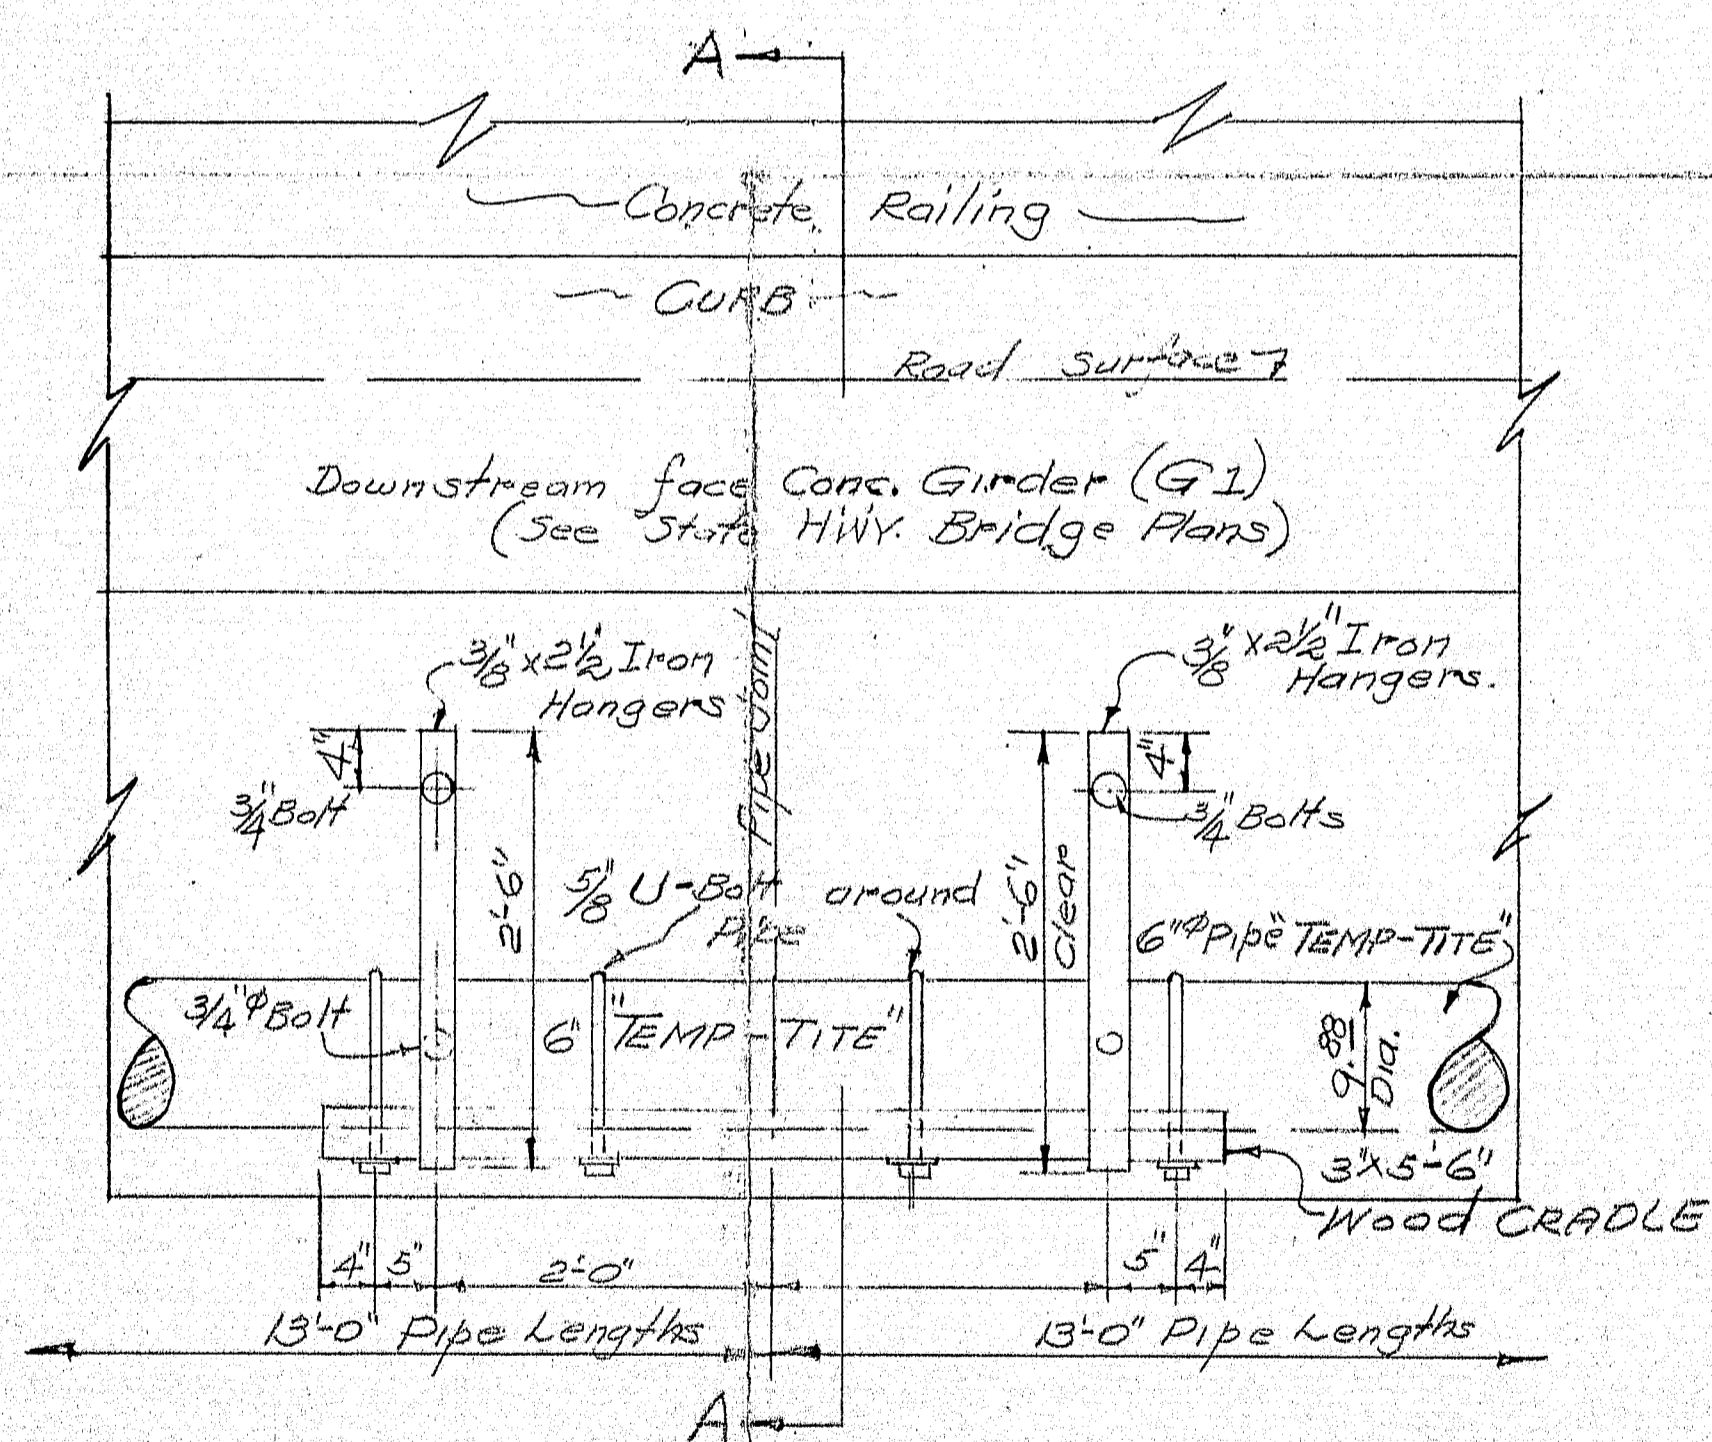 A
Concrete Railing
CURB
Road Surface
Downstream face Conc. Girder (G1)
(See State HWY. Bridge Plans)
3/8" x 2 1/2" Iron
Hangers
3/8" x 2 1/2" Iron
Hangers.
Pipe Joint
4"
4"
3/4" Bolt
3/4" Bolts
2'-6"
2'-6"
Clear
5/8" U-Bolt around
Pipe
6"φ Pipe "TEMP-TITE"
3/4"φ Bolt
6" "TEMP-TITE"
9.88
Dia.
3" x 5'-6"
Wood CRADLE
4" 5" 2'-0" 5" 4"
13'-0" Pipe Lengths
13'-0" Pipe Lengths
A